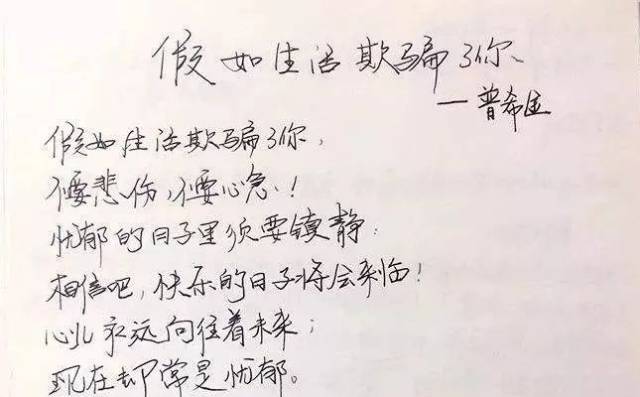 假如生活欺骗了你、
—普希金
假如生活欺骗了你，
不要悲伤，不要心急！
忧郁的日子里须要镇静：
相信吧，快乐的日子将会来临！
心儿永远向往着未来；
现在却常是忧郁。